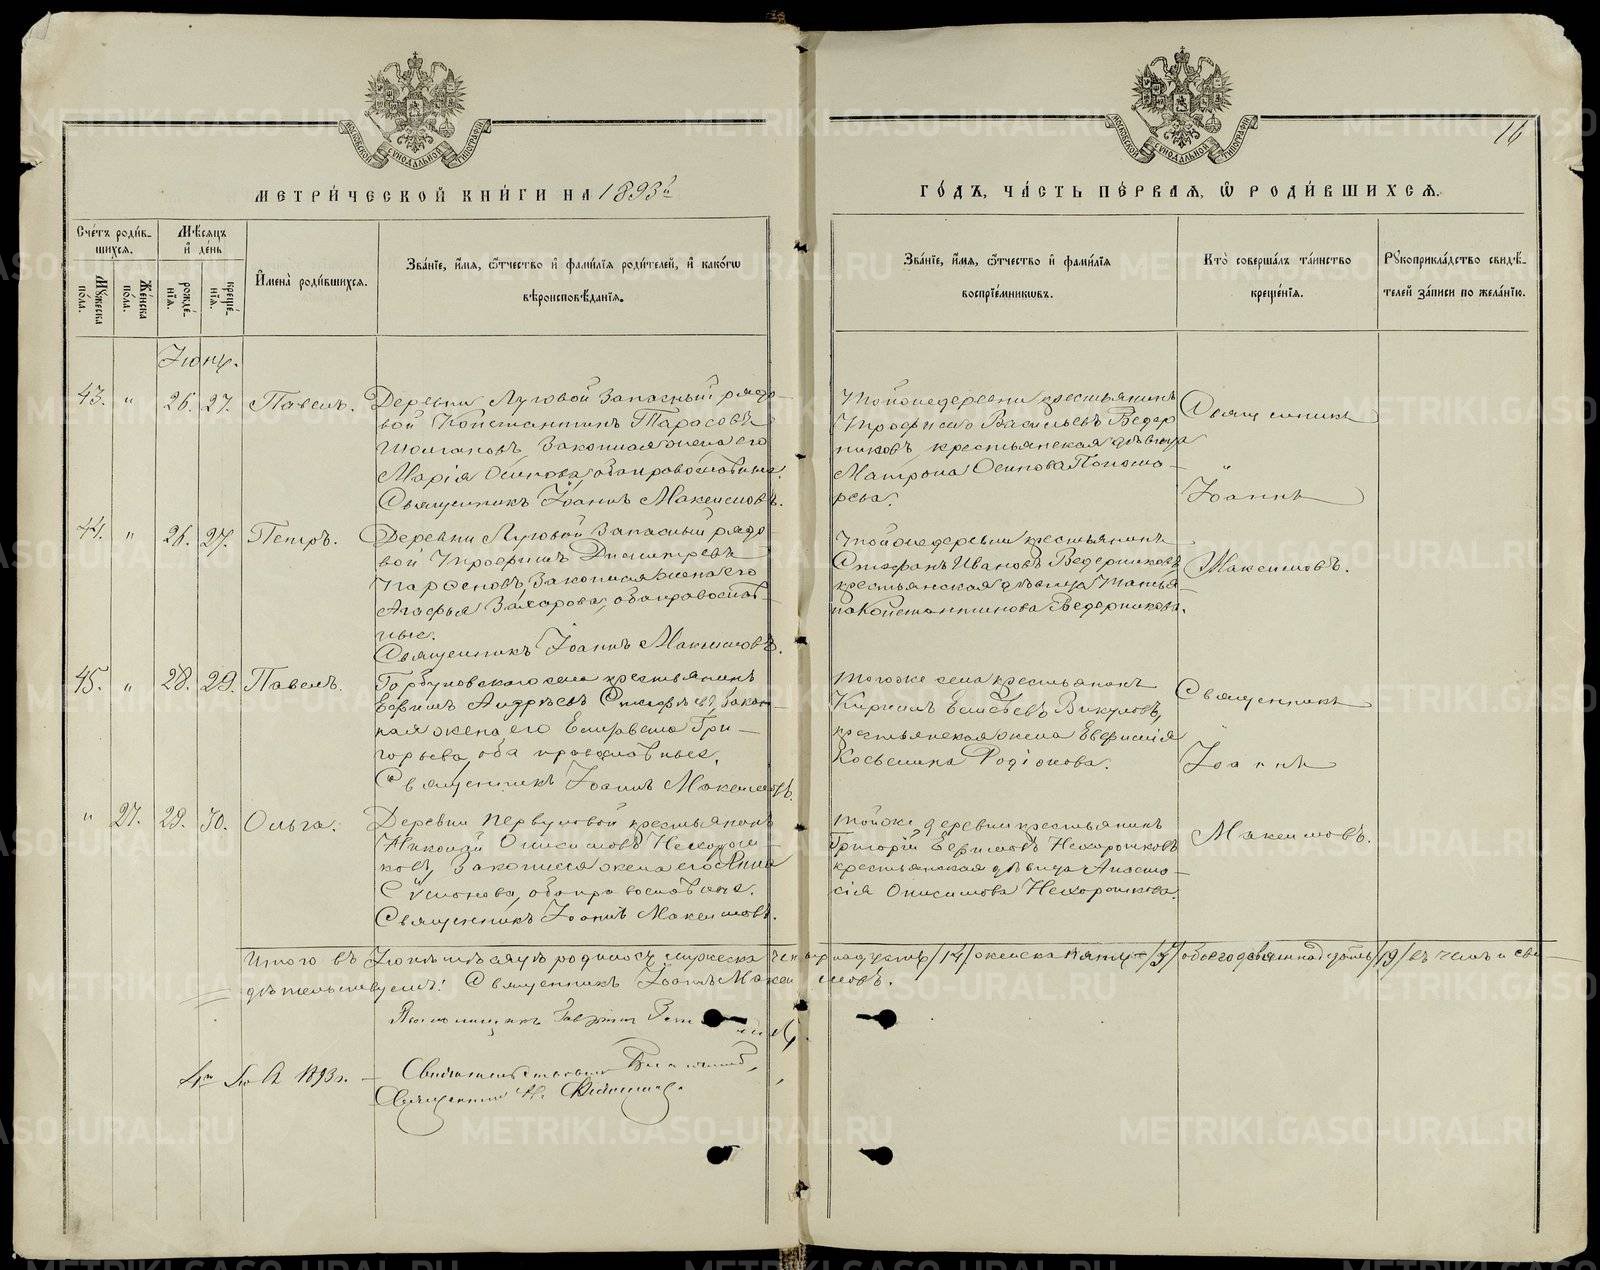 МЕТРИ́ЧЕСКОЙ КНИ́ГИ НА 1893й
ГО́ДЪ, ЧА́СТЬ ПЕ́РВАЯ, Ѿ РОДИ́ВШИХСЯ.
16
МОСКОВСКОЙ СѴНОДАЛЬНОЙ ТИПОГРАФІИ
МОСКОВСКОЙ СѴНОДАЛЬНОЙ ТИПОГРАФІИ
Сче́тъ роди́в-
шихся.
Му́жеска по́ла.
Же́нска по́ла.
Мѣ́сяцъ
и҆ де́нь
рожде́-
нїя.
креще́-
нїя.
И҆мена̀ роди́вшихся.
Зва́нїе, и҆́мя, ѻ҆́тчество и҆ фами́лїя роди́телей, и҆ како́гѡ
вѣроисповѣ́данїя.
Зва́нїе, и҆́мя, ѻ҆́тчество и҆ фами́лїя
воспрїе́мникѡвъ.
Кто̀ соверша́лъ та́инство
креще́нїя.
Рꙋкоприкла́дство свидѣ́-
телей за́писи по жела́нїю.
Іюнь.
43. " 26. 27. Павелъ.
Деревни Луговой запасный рядо-
вой Константинъ Тарасовъ
Шолгановъ, законная жена его
Марія Осипова, оба православные.
Священникъ Іоаннъ Максимовъ.
Тойже деревни крестьянинъ
Трофимъ Васильевъ Ведер
никовъ, крестьянская дѣвица
Матрона Осипова Пономо-
рева.
Священникъ
"
Іоаннъ
44. " 26. 27. Петръ.
Деревни Луговой запасный рядо
вой Трофимъ Дмитріевъ
Парѳеновъ, законная жена его
Агафья Захарова, оба православ-
ные.
Священникъ Іоаннъ Максимовъ.
Тойже деревни крестьянинъ
Стефанъ Ивановъ Ведерниковъ,
крестьянская дѣвица Татья
на Константинова Ведерникова.
Максимовъ.
45. " 28. 29. Павелъ.
Горбуновскаго села крестьянинъ
Ефимъ Андреевъ Стафѣевъ, закон-
ная жена его Елизавета Гри-
горьева, оба православные.
Священникъ Іоаннъ Максимовъ.
Тогоже села крестьянинъ
Кирилъ Елисѣевъ Викуловъ,
крестьянская жена Евфимія
Косьмина Родіонова.
Священникъ
Іоаннъ
" 27. 29. 30. Ольга.
Деревни Первуновой крестьянинъ
Николай Онисимовъ Нехорош-
ковъ, законная жена его Анна
Симонова, оба православные.
Священникъ Іоаннъ Максимовъ.
Тойже деревни крестьянинъ
Григорій Ефимовъ Нехорошковъ
крестьянская дѣвица Анаста-
сія Онисимова Нехорошкова.
Максимовъ.
Итого въ Іюнѣ мѣсяцѣ родилось мужеска четырнадцать /14/ женска пять /5/ обоего девятнадцать /19/ въ чемъ и сви-
дѣтельствуемъ: Священникъ Іоаннъ Максимовъ.
Псаломщикъ Гавріилъ
1893 г. — Свидѣтельствовалъ Благочинный,
Священникъ
METRIKI.GASO-URAL.RU